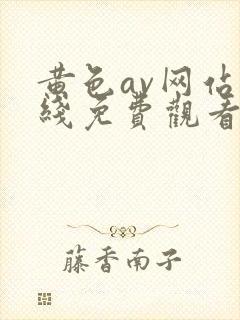 黄色av网佔
綫免費觀看
藤香南子